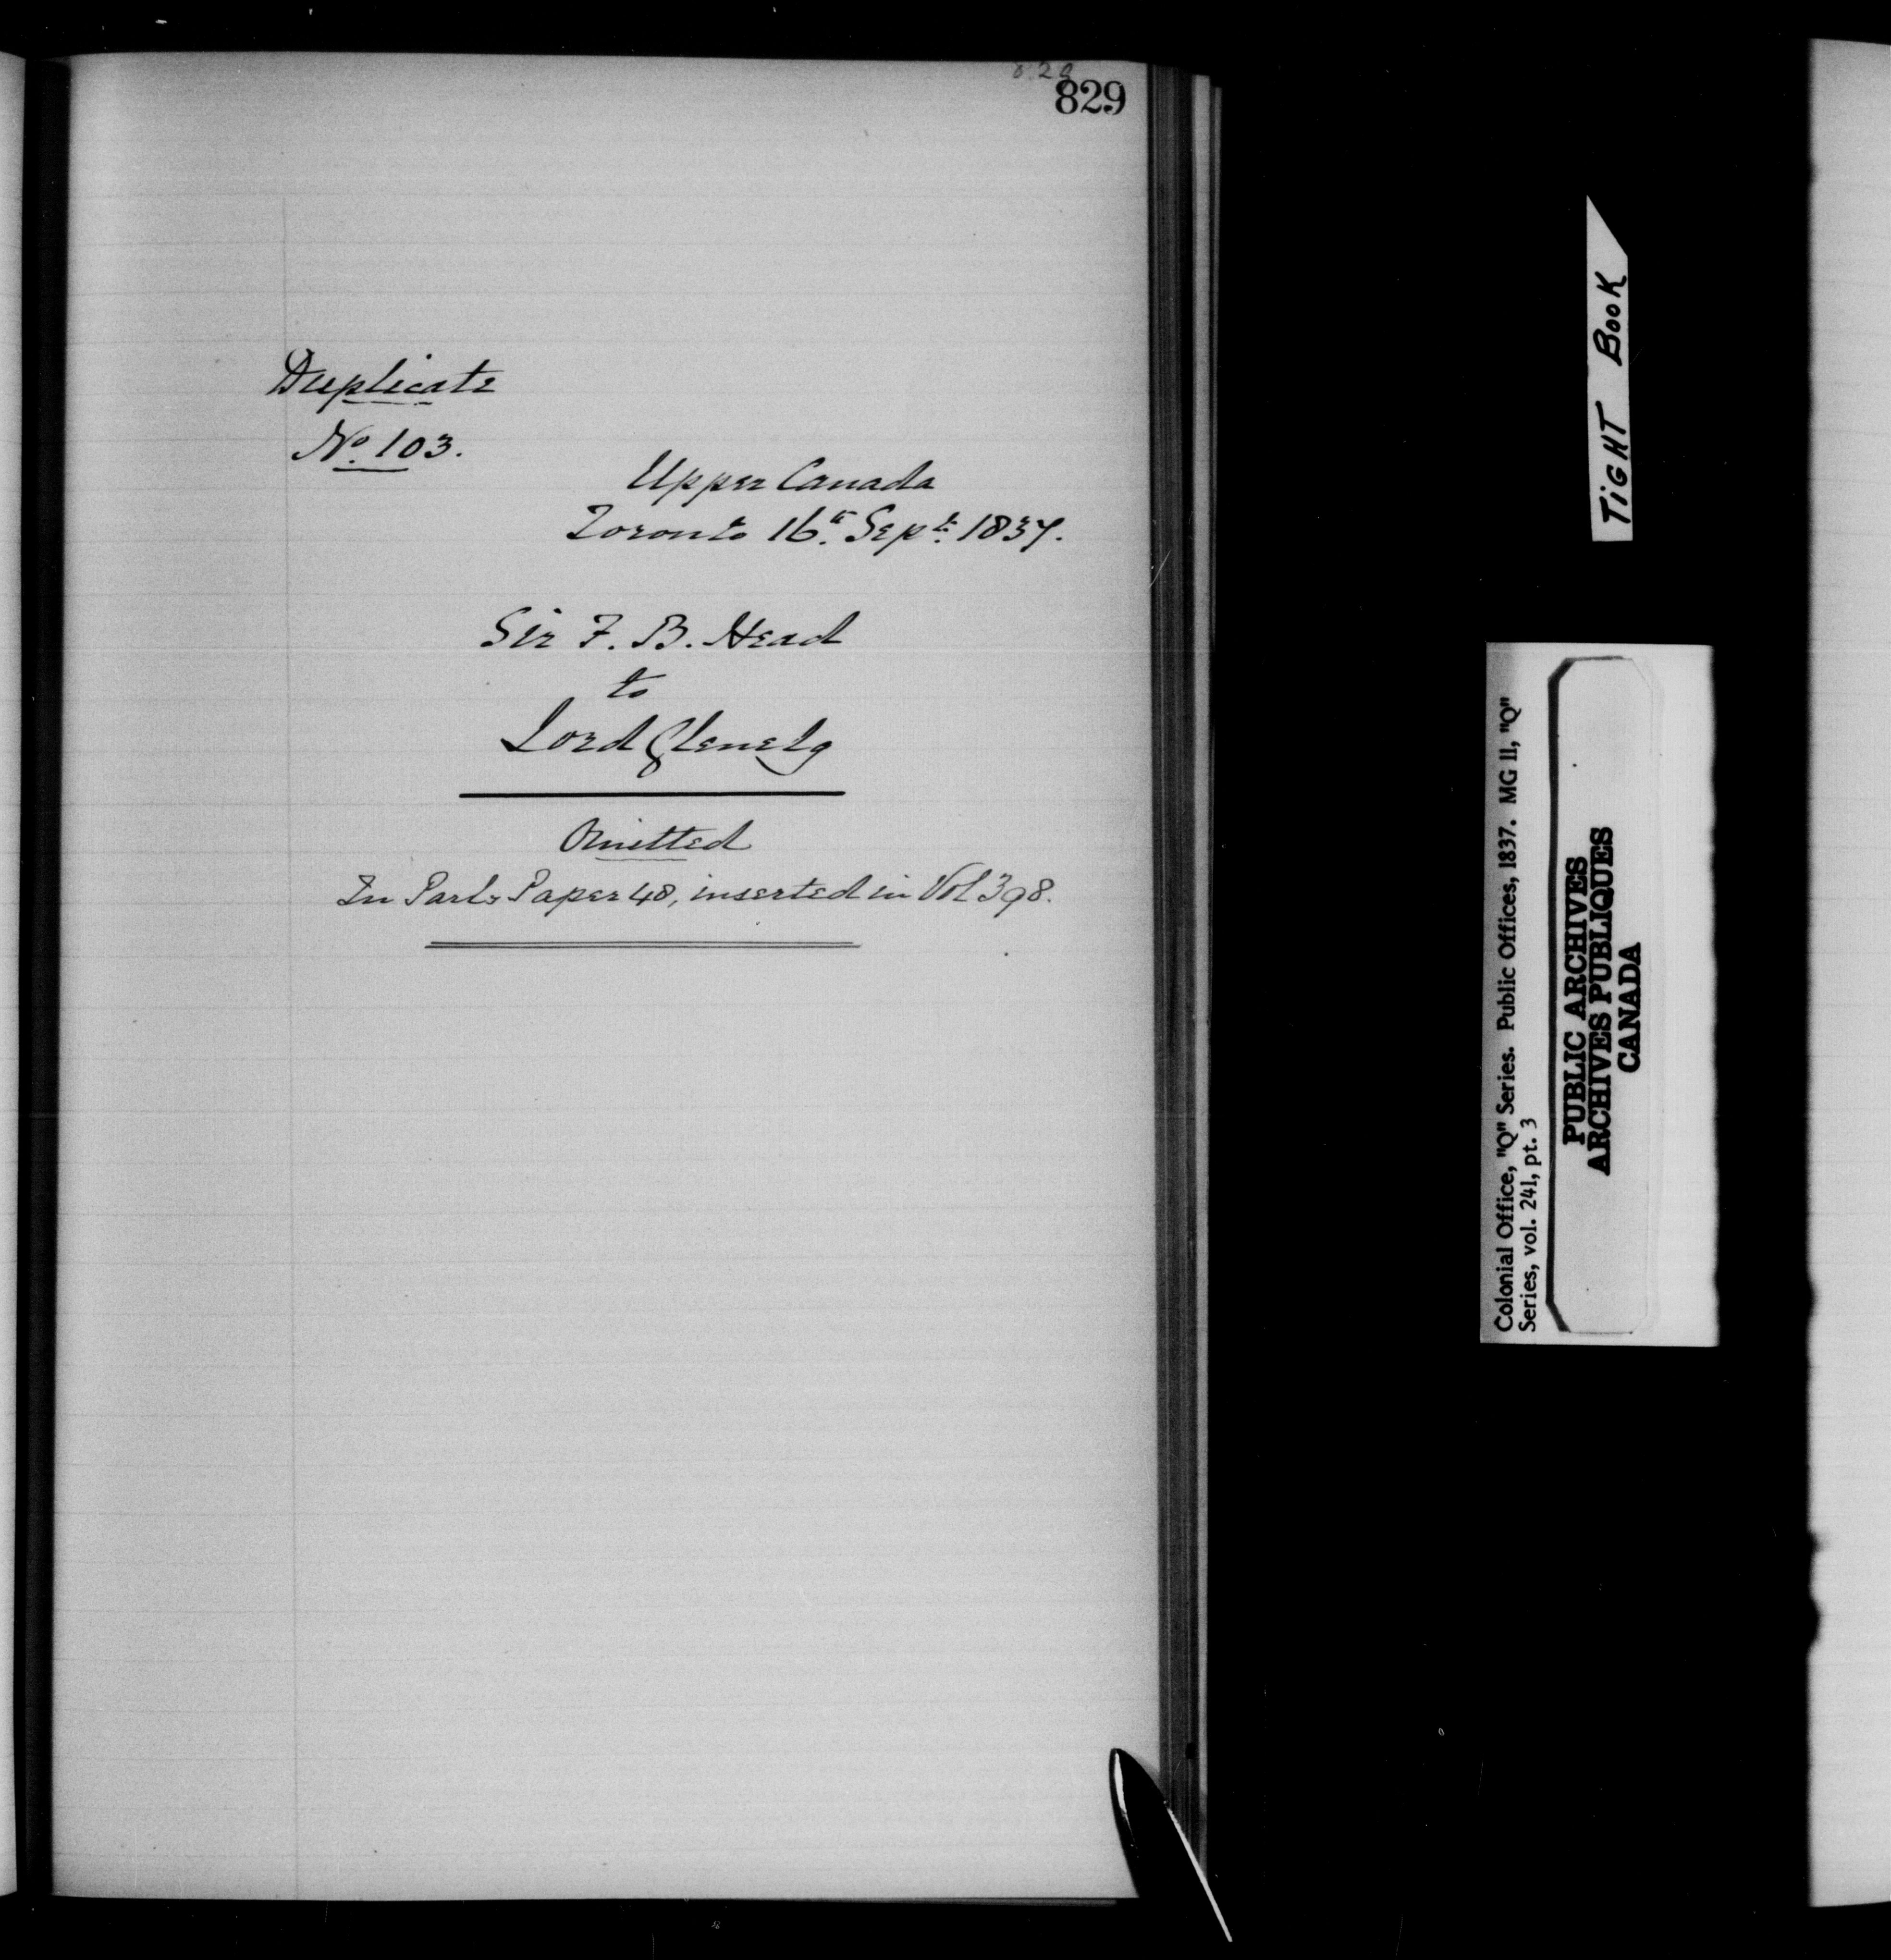 829
829
Duplicate
No. 103.
Upper Canada
Toronto 16th Sept. 1837.
Sir F. B. Head
to
Lord Glenelg
Omitted
In Parl. Paper 48, inserted in Vol 398.
TiGHT BooK
Colonial Office, "Q" Series. Public Offices, 1837. MG 11, "Q"
Series, vol. 241, pt. 3
PUBLIC ARCHIVES
ARCHIVES PUBLIQUES
CANADA